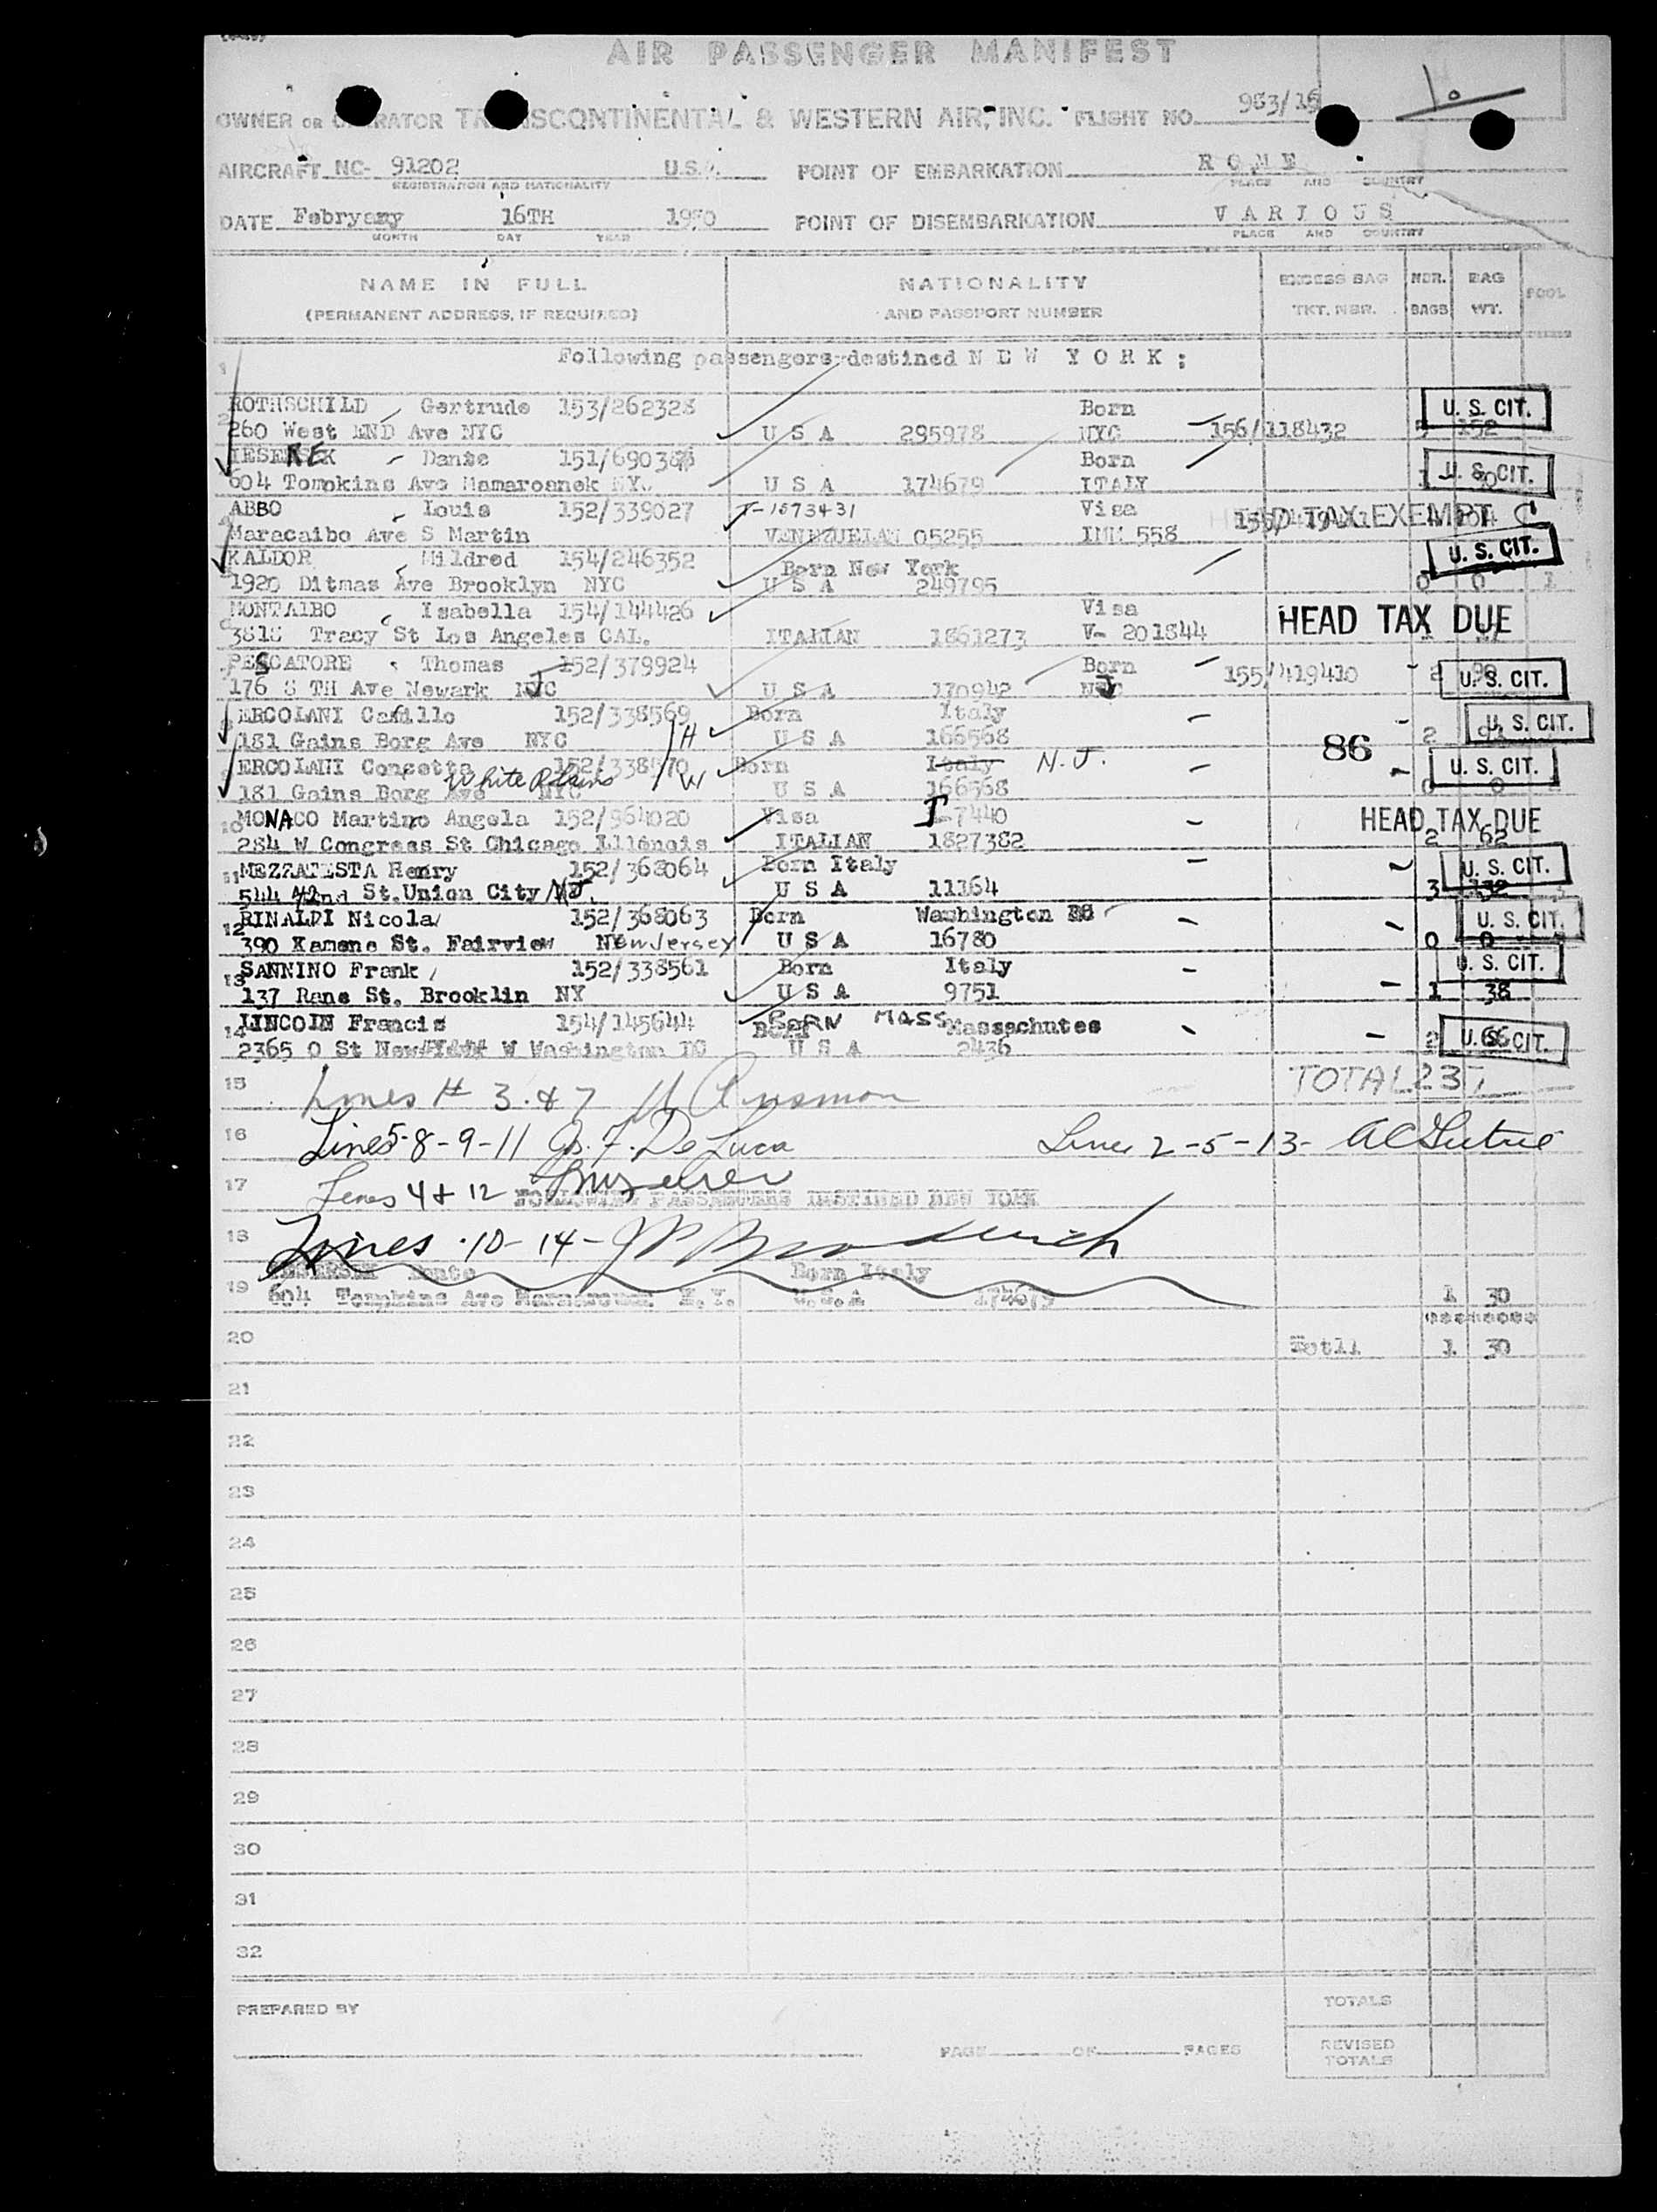 AIR PASSENGER MANIFEST
OWNER OR OPERATOR TRANSCONTINENTAL & WESTERN AIR, INC. FLIGHT NO. 963/15
AIRCRAFT NC- 91202 U.S.A. POINT OF EMBARKATION R O M E
REGISTRATION AND NATIONALITY PLACE AND COUNTRY
DATE Februany 16TH 1950 POINT OF DISEMBARKATION V A R I O U S
MONTH DAY YEAR PLACE AND COUNTRY
NAME IN FULL NATIONALITY EXCESS BAG NBR. BAG POOL
(PERMANENT ADDRESS, IF REQUIRED) AND PASSPORT NUMBER TKT. NBR. BAGS WT.
1 Following passengers destined N E W Y O R K ;
ROTHSCHILD Gertrude 153/262328 Born U. S. CIT.
2 260 West END Ave NYC U S A 295978 NYC 156/118432 5 152
Dante 151/690386 Born U. S. CIT.
604 Tompkins Ave Mamaroanek NY. U S A 174679 ITALY 1 30
ABBO Louis 152/339027 T-1573431 Visa HEAD TAX EXEMPT C
Maracaibo Ave S Martin VENEZUELAN 05255 IMM 558
KALDOR Mildred 154/246352 Born New York U. S. CIT.
1920 Ditmas Ave Brooklyn NYC U S A 249795 0 0 1
MONTALBO Isabella 154/144426 Visa HEAD TAX DUE
3818 Tracy St Los Angeles CAL. ITALIAN 1861273 V- 201844
PESCATORE Thomas 152/379924 Born 155/419410 2 90 U. S. CIT.
176 8 TH Ave Newark NJC U S A 170942 NJ
ERCOLANI Camillo 152/338569 Born Italy U. S. CIT.
181 Gains Borg Ave NYC H U S A 166568 86 2 93
ERCOLANI Concetta 152/338570 W Born Italy N. J. U. S. CIT.
181 Gains Borg Ave White Plains NYC U S A 166568 0 0
10 MONACO Martino Angela 152/964020 Visa I-7440 HEAD TAX DUE
284 W Congress St Chicago Illinois ITALIAN 1827382 2 62
11 MEZZATESTA Henry 152/368064 Born Italy U. S. CIT.
544 42nd St. Union City NJ. U S A 11164 3 132 3
12 RINALDI Nicola 152/368063 Born Washington U. S. CIT.
390 Kamene St. Fairview New Jersey U S A 16780 0 0
13 SANNINO Frank 152/338561 Born Italy U. S. CIT.
137 Rane St. Brooklin NY U S A 9751 1 38
14 LINCOLN Francis 154/145644 BORN MASS Massachutes
2365 O St New W Washington DC U S A 2436 2 66 U. S. CIT.
15 Lines # 3 & 7 TOTAL 23
16 Lines 5-8-9-11 De Luca Lines 2-5-13-
17 Lines 4 & 12 FOLLOWING PASSENGERS DESTINED NEW YORK
18 Lines 10-14-
Dante Born Italy
19 604 Tompkins Ave N.Y. U.S.A 174679 1 30
20 Totll 1 30
21
22
23
24
25
26
27
28
29
30
31
32
PREPARED BY TOTALS
PAGE OF PAGES REVISED TOTALS